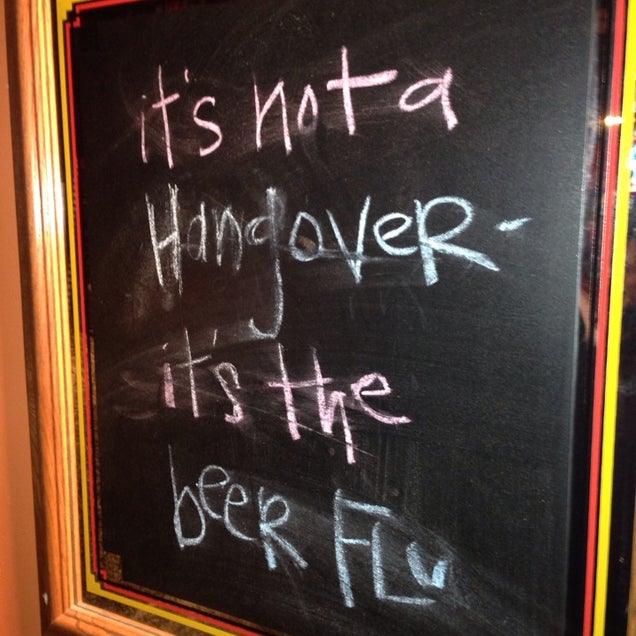 it's not a
HangoveR-
it's the
beeR FLu